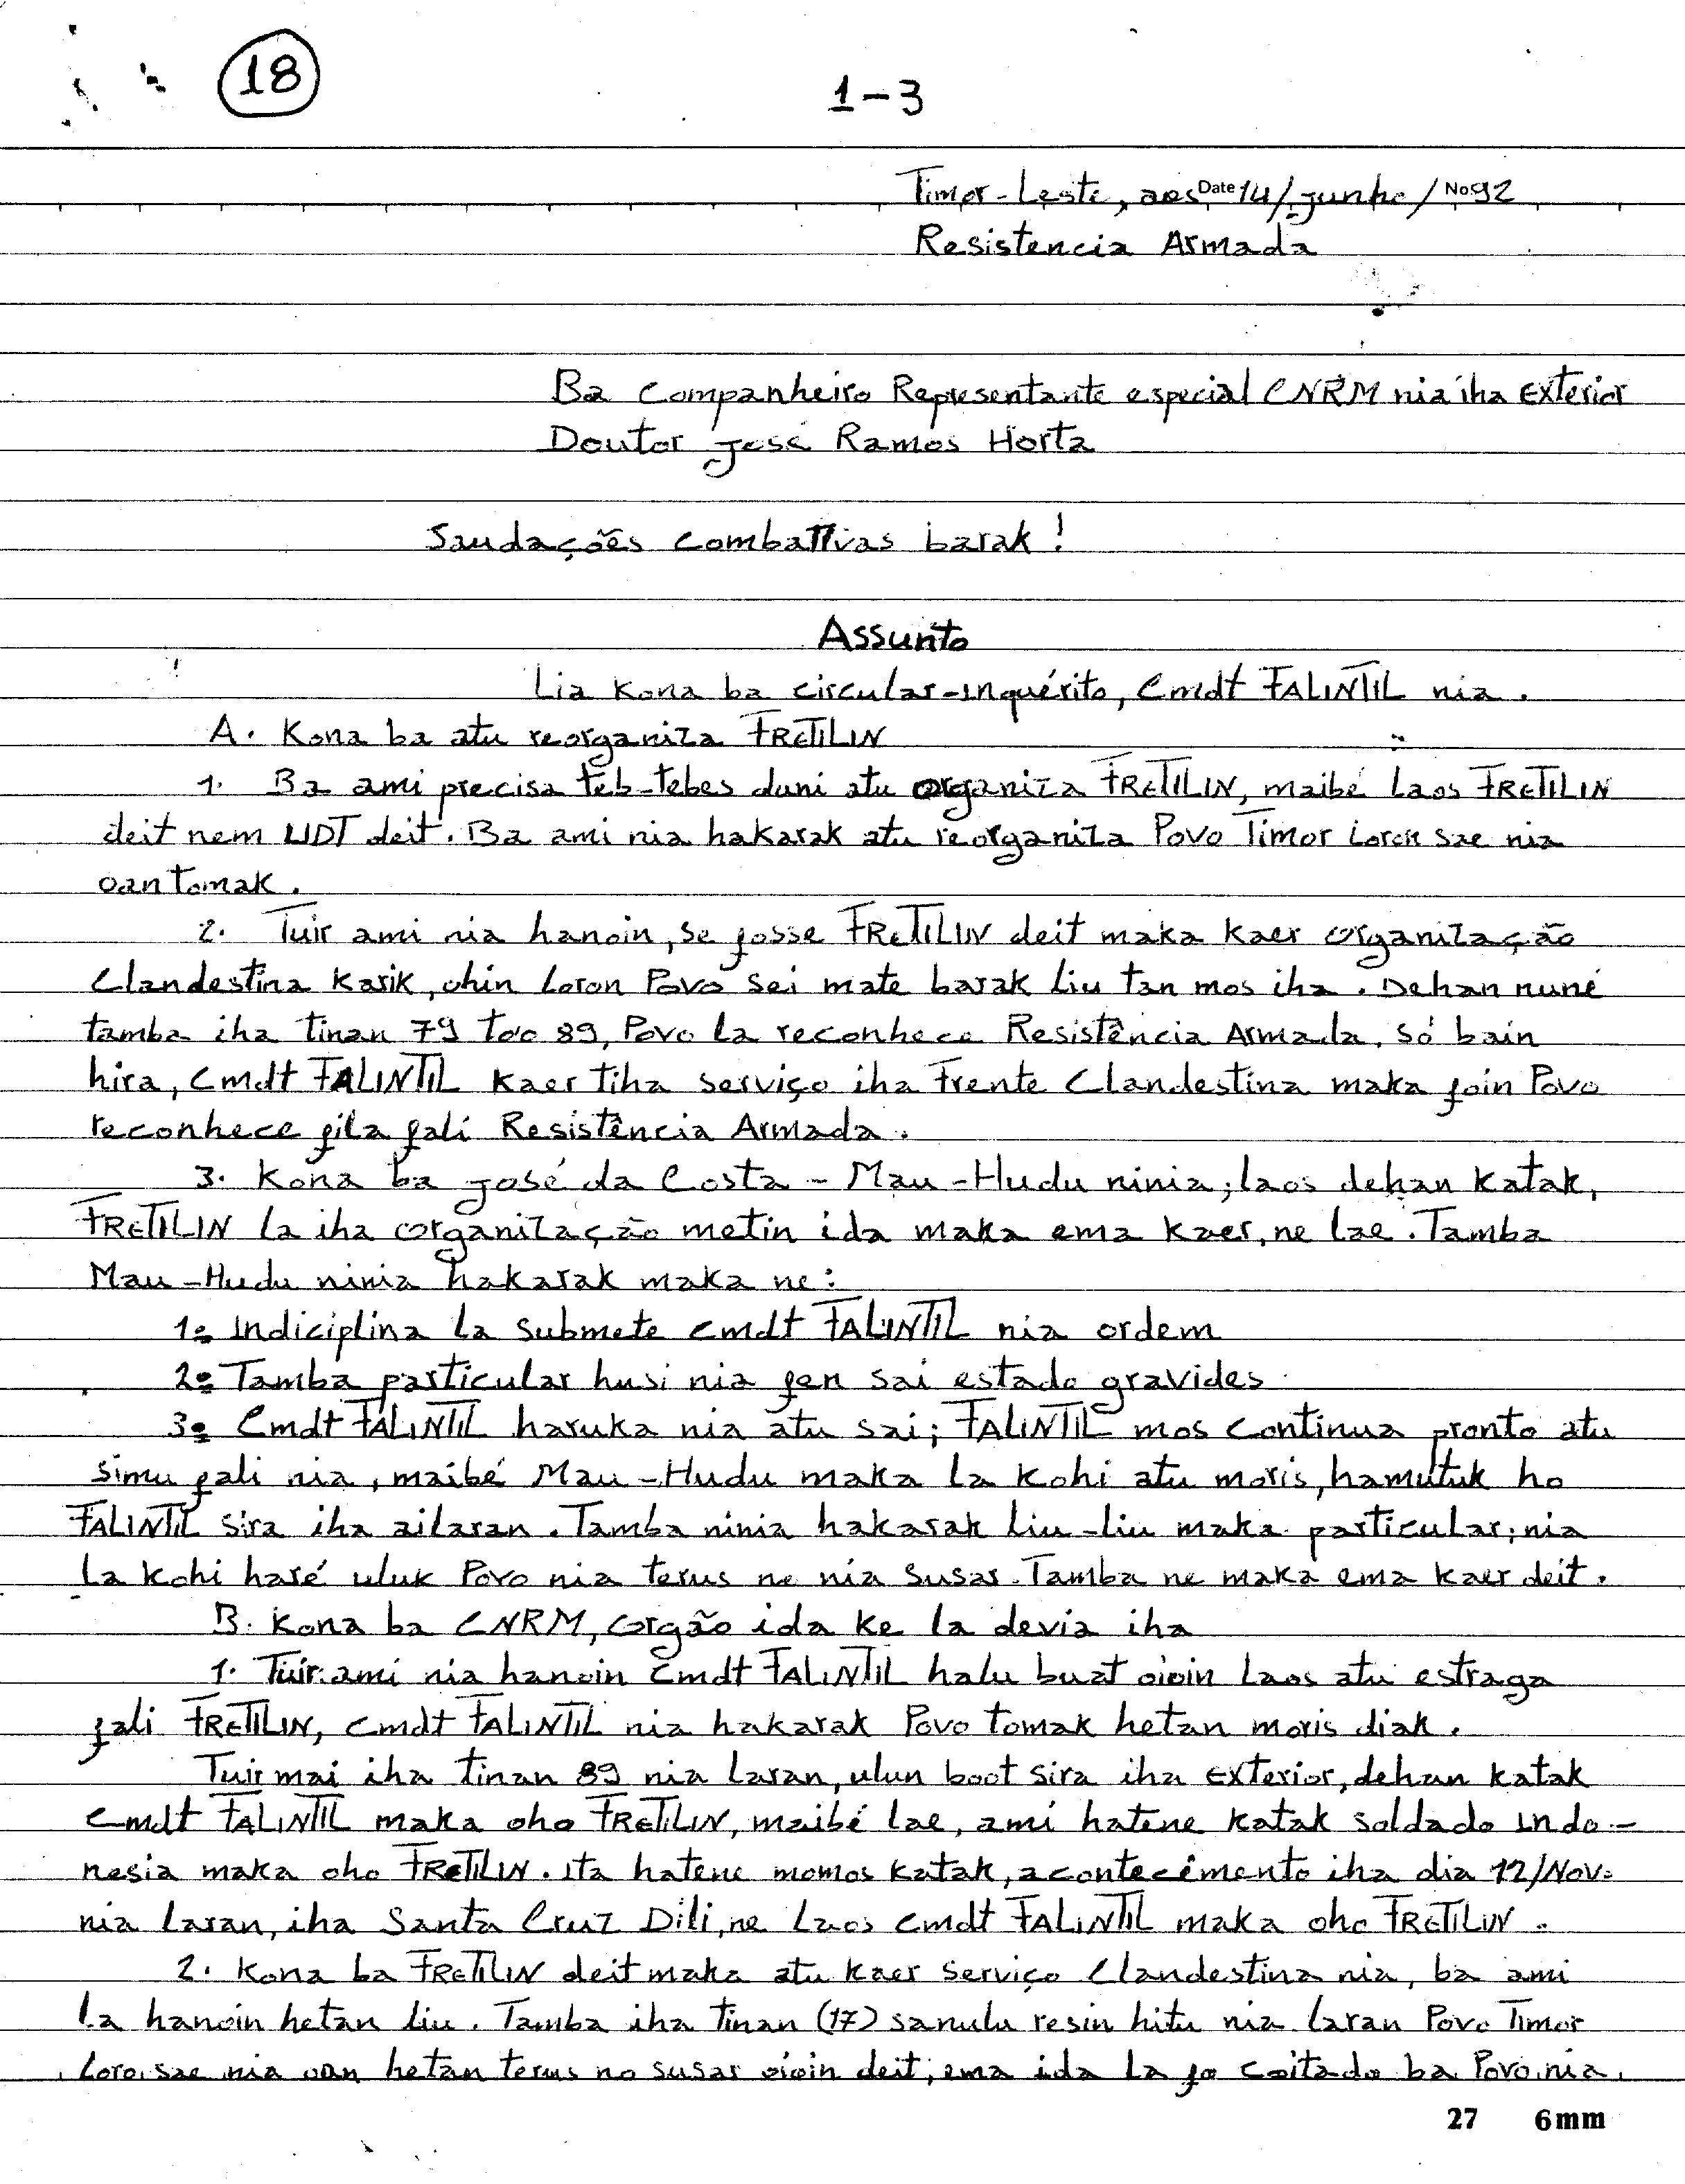 18
1-3
Timor-Leste, aos Date 14/junho/No 92
Resistencia Armada
Ba Companheiro Representante especial CNRM nia iha Exterior
Doutor José Ramos Horta
Saudações combativas barak!
Assunto
Lia kona ba circular-inquérito, Cmdt FALINTIL nia.
A. Kona ba atu reorganiza FRETILIN
1. Ba ami precisa teb-tebes duni atu organiza FRETILIN, maibé laos FRETILIN
deit nem UDT deit. Ba ami nia hakarak atu reorganiza Povo Timor Loron sae nia
oan tomak.
2. Tuir ami nia hanoin, se fosse FRETILIN deit maka kaer organização
Clandestina karik, ohin loron Povo sei mate barak liu tan mos iha. Dehan nuné
tamba iha tinan 79 too 89, Povo la reconhece Resistência Armada. Só bain
hira, Cmdt FALINTIL kaer tiha serviço iha Frente Clandestina maka foin Povo
reconhece fila fali Resistência Armada.
3. Kona ba José da Costa - Mau-Hudu ninia; laos dehan katak,
FRETILIN la iha organização metin ida maka ema kaer, ne lae. Tamba
Mau-Hudu ninia hakarak maka ne:
1º Indiciplina la submete cmdt FALINTIL nia ordem
2º Tamba particular husi nia fen sai estado gravides
3º Cmdt FALINTIL haruka nia atu sai; FALINTIL mos continua pronto atu
simu fali nia, maibé Mau-Hudu maka la kohi atu moris, hamutuk ho
FALINTIL sira iha ailaran. Tamba ninia hakarak liu-liu maka particular; nia
la kohi haré uluk Povo nia terus ne nia susar. Tamba ne maka ema kaer deit.
B. Kona ba CNRM, orgão ida ke la devia iha
1. Tuir ami nia hanoin Cmdt FALINTIL halu buat oioin laos atu estraga
fali FRETILIN, cmdt FALINTIL nia hakarak Povo tomak hetan moris diak.
Tuir mai iha tinan 89 nia laran, ulun boot sira iha Exterior, dehan katak
Cmdt FALINTIL maka oho FRETILIN, maibé lae, ami hatene katak soldado indo-
nesia maka oho FRETILIN. Ita hatene momos katak, acontecimento iha dia 12/Nov.
nia laran, iha Santa Cruz Dili, ne laos cmdt FALINTIL maka oho FRETILIN.
2. Kona ba FRETILIN deit maka atu kaer serviço Clandestina nia, ba ami
la hanoin hetan liu. Tamba iha tinan (17) sanulu resin hitu nia laran Povo Timor
Loro sae nia oan hetan terus no susar oioin deit; ema ida la fo coitado ba Povo nia.
27 6mm